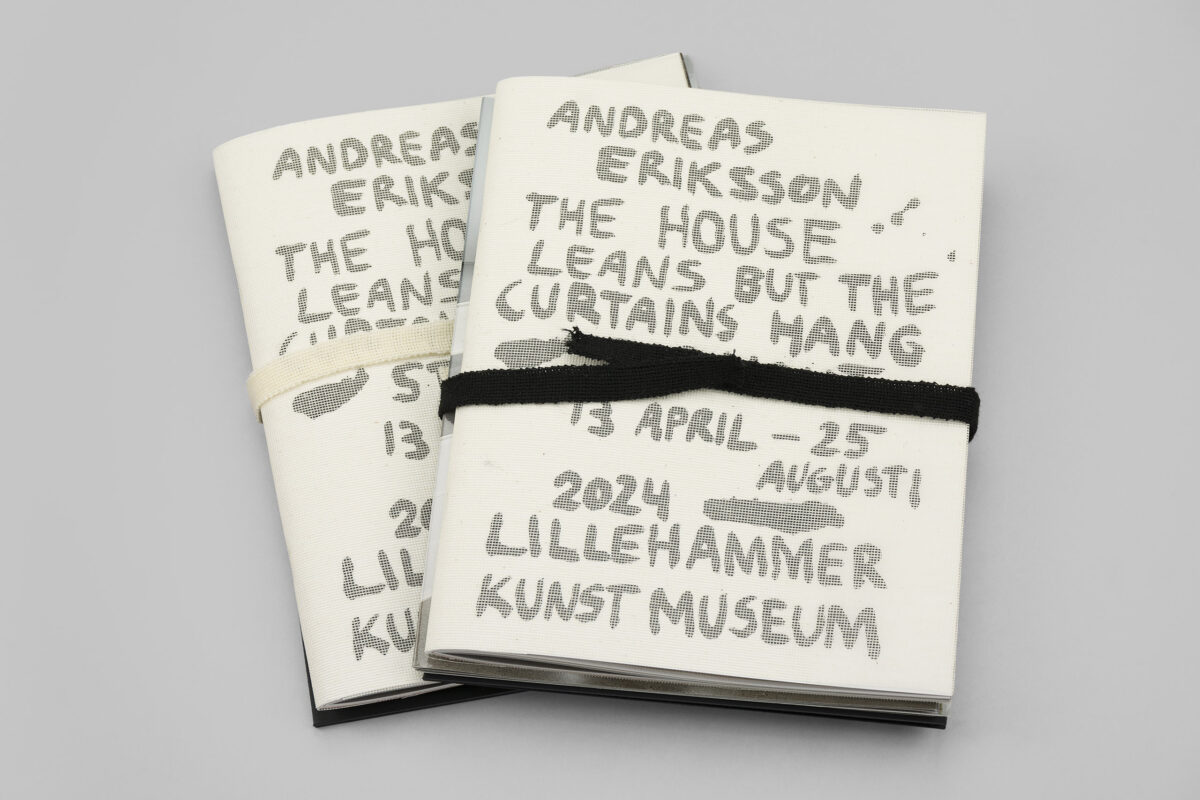 ANDREAS
ERIKS
THE HO
LEANS
ST
13
20
LIL
KU
ANDREAS
ERIKSSON
THE HOUSE
LEANS BUT THE
CURTAINS HANG
13 APRIL – 25
AUGUSTI
2024
LILLEHAMMER
KUNST MUSEUM